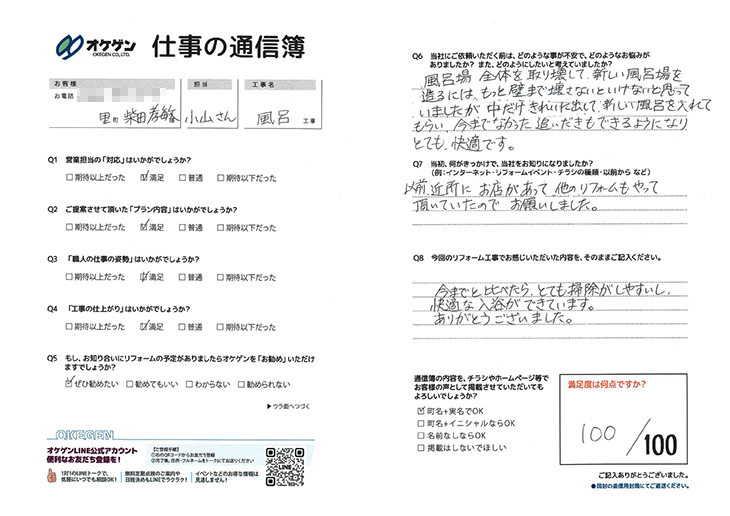 オケゲン
OKEGEN CO.,LTD.
仕事の通信簿
お客様
お電話
里町 柴田孝敏様
担当
小山さん
工事名
風呂 工事
Q1 営業担当の「対応」はいかがでしょうか?
□期待以上だった ☑満足 □普通 □期待以下だった
Q2 ご提案させて頂いた「プラン内容」はいかがでしょうか?
□期待以上だった ☑満足 □普通 □期待以下だった
Q3 「職人の仕事の姿勢」はいかがでしょうか?
□期待以上だった ☑満足 □普通 □期待以下だった
Q4 「工事の仕上がり」はいかがでしょうか?
□期待以上だった ☑満足 □普通 □期待以下だった
Q5 もし、お知り合いにリフォームの予定がありましたらオケゲンを「お勧め」いただけ
ますでしょうか?
☑ぜひ勧めたい □勧めてもいい □わからない □勧められない
▶ウラ面へつづく
OKEGEN
オケゲンLINE公式アカウント
便利なお友だち登録を!
【ご登録手順】
①右のQRコードからお友だち登録
②完了後、住所・フルネームをトークにてお送りください
1対1のLINEトークで、
気軽にいつでも相談OK!
無料定期点検のご案内や
日程決めもLINEでラクラク!
イベントなどのお得な情報は
見逃しません!
Q6 当社にご依頼いただく前は、どのような事が不安で、どのようなお悩みが
ありましたか? また、どのようにしたいと考えていましたか?
風呂場全体を取り壊して、新しい風呂場を
造るには、もっと壁まで壊さないといけないと思って
いましたが中だけきれいに出して、新しい風呂を入れて
もらい、今までなかった追いだきもできるようになり
とても快適です。
Q7 当初、何がきっかけで、当社をお知りになりましたか?
(例:インターネット・リフォームイベント・チラシの種類・以前から など)
以前、近所にお店があって、他のリフォームもやって
頂いていたのでお願いしました。
Q8 今回のリフォーム工事でお感じいただいた内容を、そのままご記入ください。
今までと比べたら、とても掃除がしやすいし、
快適な入浴ができています。
ありがとうございました。
通信簿の内容を、チラシやホームページ等で
お客様の声として掲載させていただいても
よろしいでしょうか?
☑町名+実名でOK
□町名+イニシャルならOK
□名前なしならOK
□掲載はしないでほしい
満足度は何点ですか?
100/100
ご記入ありがとうございました。
●同封の返信用封筒にてご返送ください。